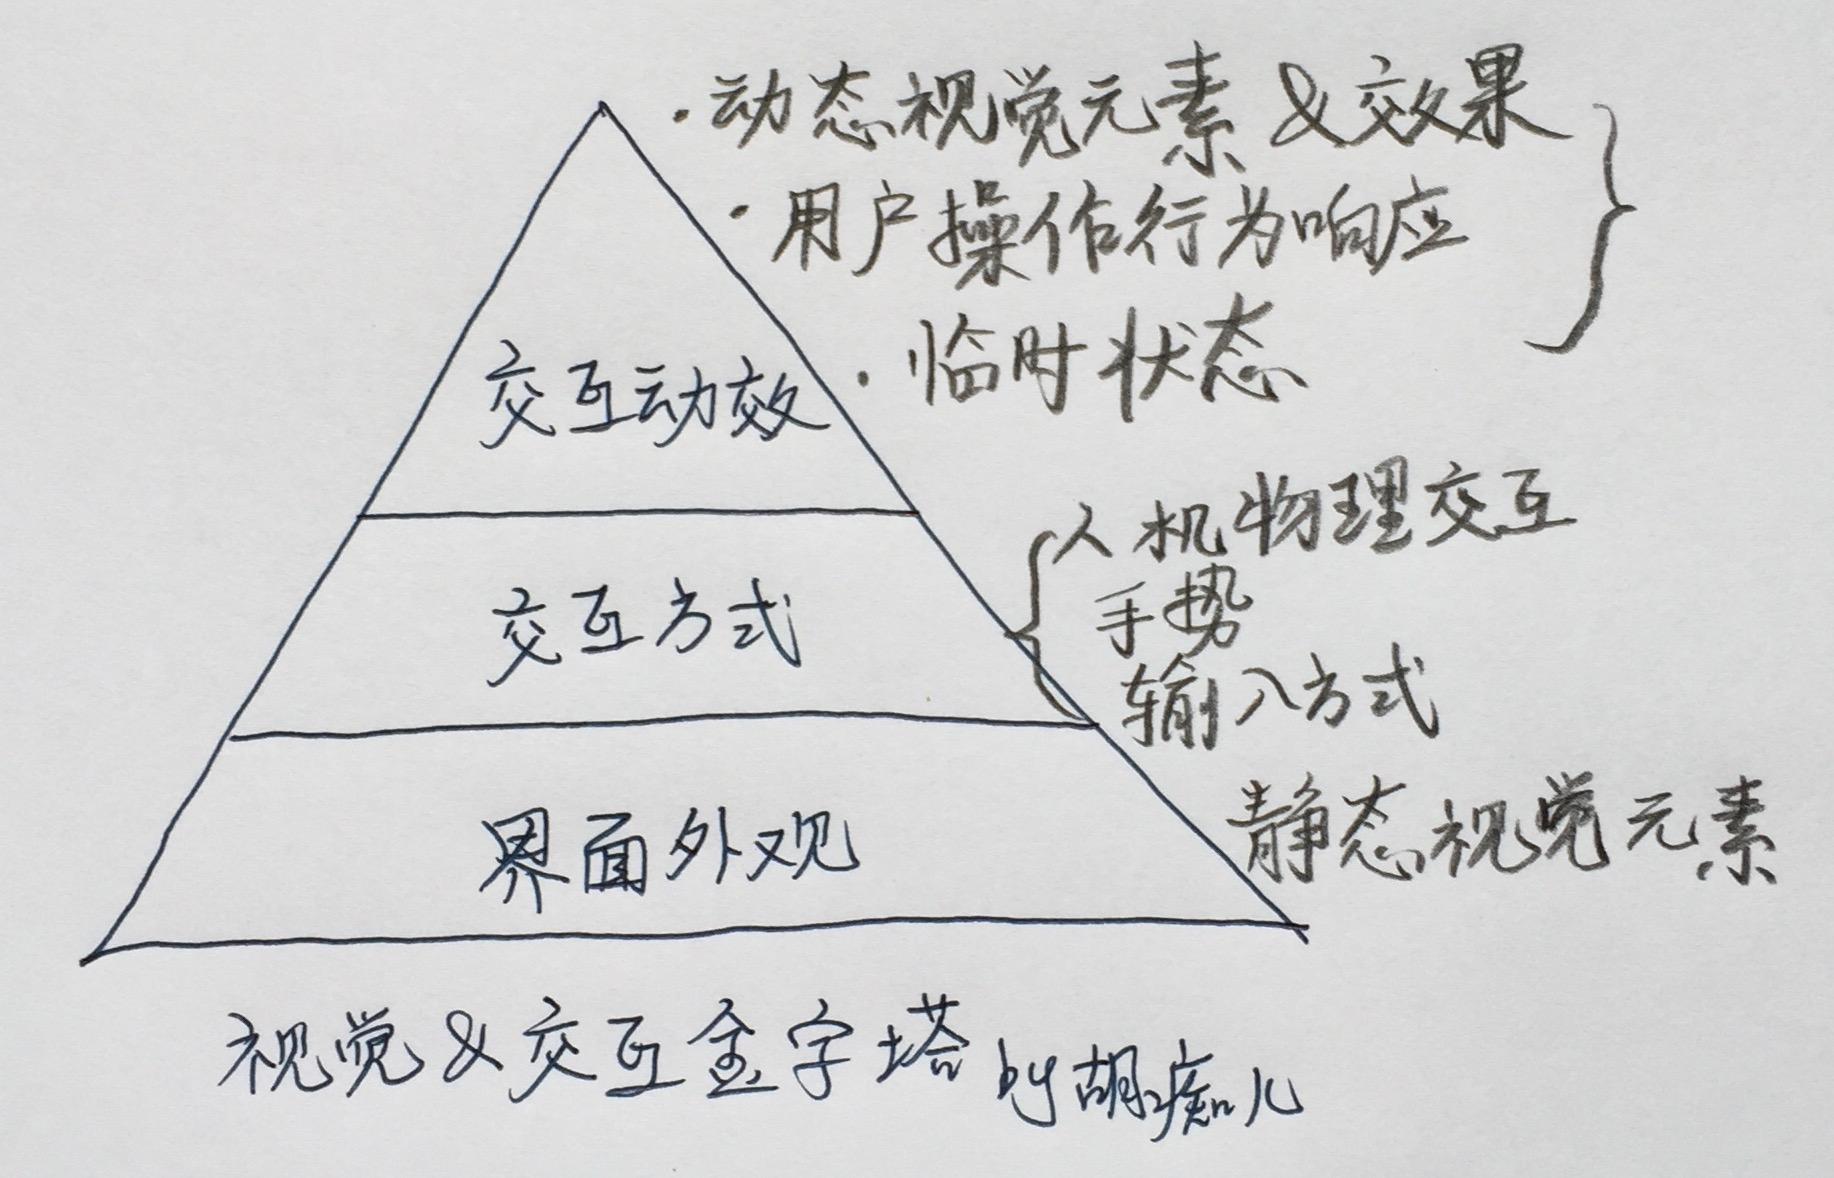 · 动态视觉元素 & 效果
· 用户操作行为响应
· 临时状态
交互动效
人机物理交互
手势
输入方式
交互方式
静态视觉元素
界面外观
视觉 & 交互金字塔 by 胡痴儿